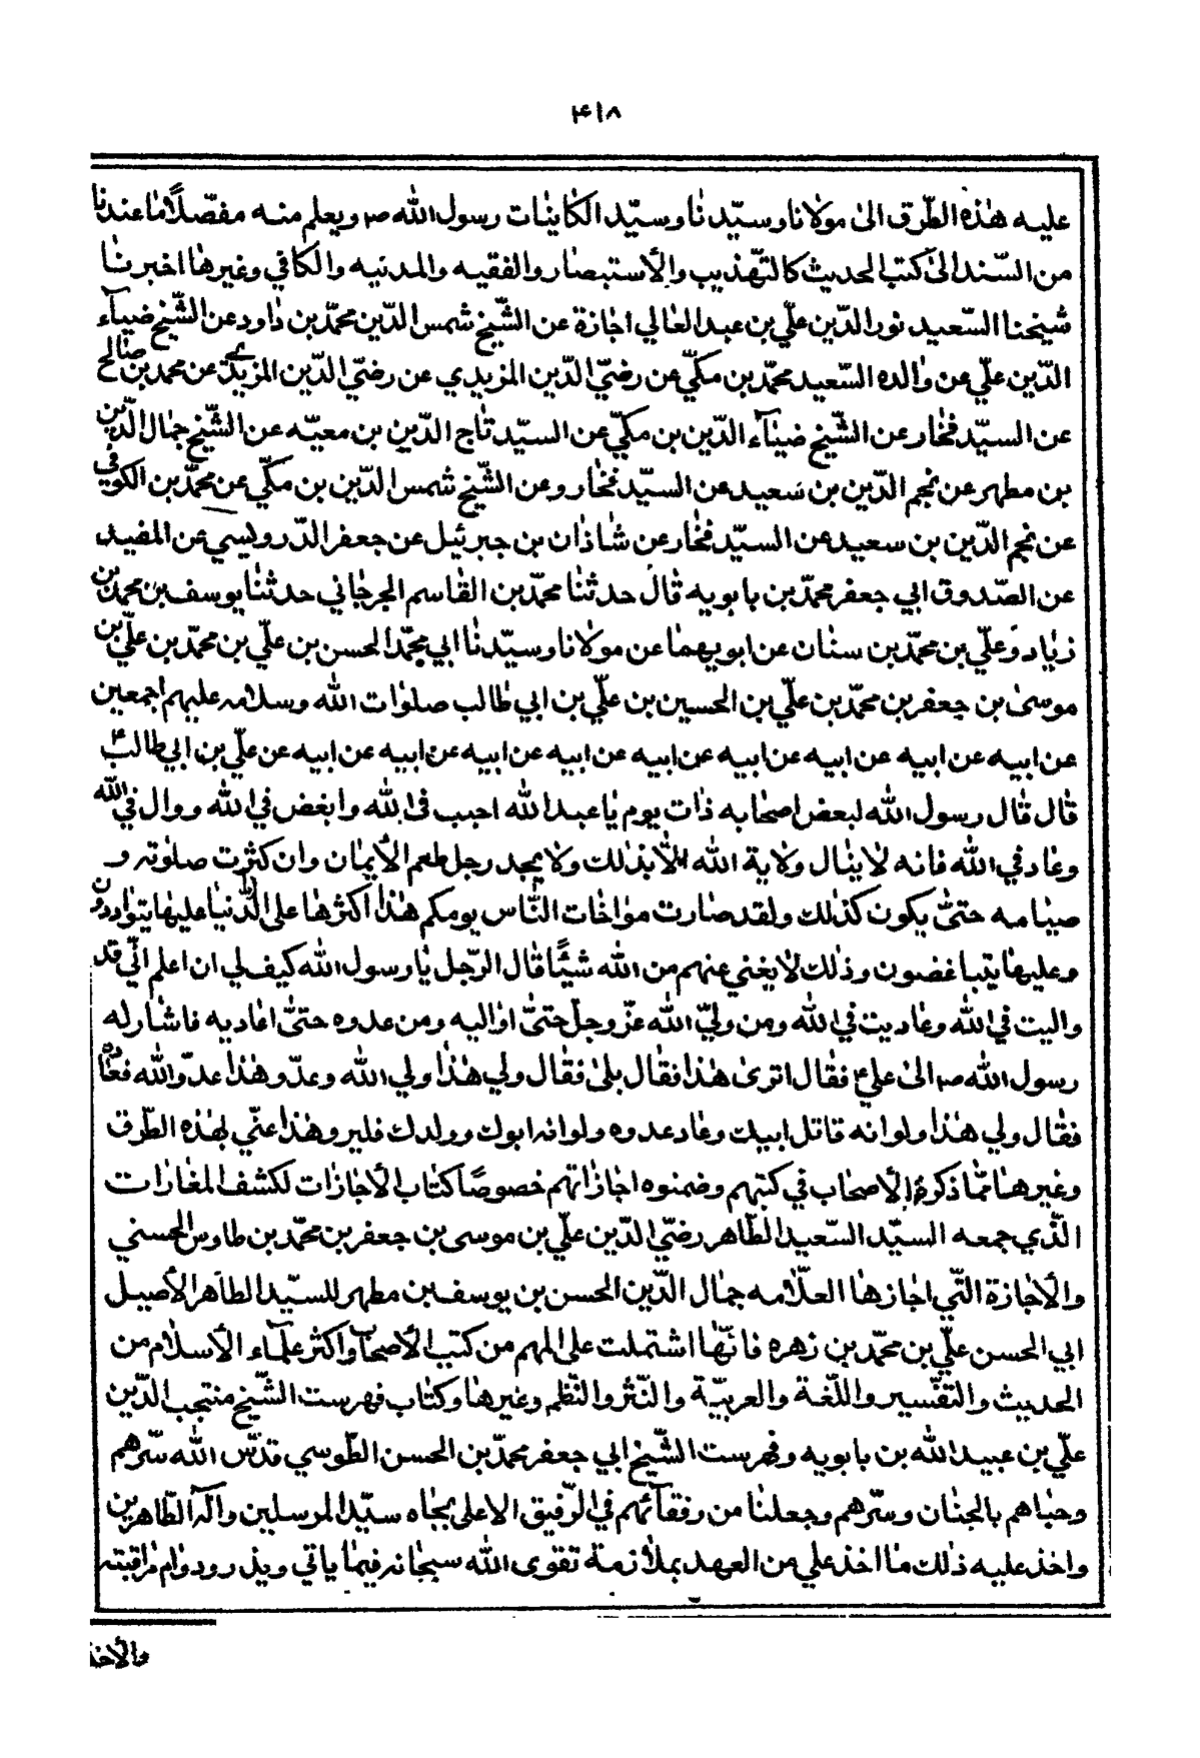 ۴۱۸
عليه هذه الطّرق الى مولانا وسيّدنا وسيّد الكاينات رسول الله ص ويعلم منه مفصّلاً ما عندنا
من السّند الى كتب الحديث كالتهّذيب والأستبصار والفقيه والمدنيه والكافي وغيرها اخبرنا
شيخنا السّعيد نور الدّين عليّ بن عبد العالي اجازة عن الشّيخ شمس الدّين محمّد بن داود عن الشّيخ ضياء
الدّين عليّ عن والده السّعيد محمّد بن مكّيّ عن رضيّ الدّين المزيدي عن رضيّ الدّين المزيدي عن محمد بن صالح
عن السيّد فخار عن الشّيخ ضياء الدّين بن مكّيّ عن السيّد تاج الدّين بن معيّه عن الشّيخ جمال الدّين
بن مطهر عن نجم الدّين بن سعيد عن السيّد فخار وعن الشّيخ شمس الدّين بن مكّيّ عن محمّد بن الكوفي
عن نجم الدّين بن سعيد عن السيّد فخار عن شاذان بن جبرئيل عن جعفر الدّرويسي عن المفيد
عن الصّدوق ابي جعفر محمّد بن بابويه قال حدثنا محمّد بن القاسم الجرجاني حدثنا يوسف بن محمد بن
زياد وعليّ بن محمّد بن سنان عن ابويهما عن مولانا وسيّدنا ابي محمّد الحسن بن عليّ بن محمّد بن عليّ بن
موسى بن جعفر بن محمّد بن عليّ بن الحسين بن عليّ بن ابي طالب صلوات الله وسلامه عليهم اجمعين
عن ابيه عن ابيه عن ابيه عن ابيه عن ابيه عن ابيه عن ابيه عن ابيه عن ابيه عن عليّ بن ابي طالب ع
قال قال رسول الله لبعض اصحابه ذات يوم يا عبد الله احبب في الله وابغض في الله ووال في الله
وعاد في الله فانه لا ينال ولاية الله الّا بذلك ولا يجد رجل طعم الأيمان وان كثرت صلوته و
صيامه حتىّ يكون كذلك ولقد صارت مواخات النّاس يومكم هذا اكثرها على الدّنيا عليها يتواردون
وعليها يتباغضون وذلك لا يغني عنهم من الله شيئًا قال الرّجل يا رسول الله كيف لي ان اعلم انّي قد
واليت في الله وعاديت في الله ومن وليّ الله عزّ وجلّ حتىّ اواليه ومن عدوه حتىّ اعاديه فاشار له
رسول الله ص الى علي ع فقال اترى هذا فقال بلى فقال ولي هذا ولي الله وعدّو هذا عدّو الله فعاده
فقال ولي هذا ولو انه قاتل ابيك وعاد عدوه ولو انه ابوك وولدك فليرو هذا عنّي بهذه الطّرق
وغيرها ممّا ذكره الأصحاب في كتبهم وضمنوه اجازاتهم خصوصًا كتاب الأجازات لكشف المغازات
الّذي جمعه السيّد السّعيد الطّاهر رضيّ الدّين عليّ بن موسى بن جعفر بن محمّد بن طاوس الحسني
والأجازة التّي اجازها العلّامه جمال الدّين الحسن بن يوسف بن مطهر للسيّد الطاهر الأصيل
ابي الحسن عليّ بن محمّد بن زهره فانّها اشتملت على المهم من كتب الأصحاب واكثر علماء الأسلام من
الحديث والتفّسير واللّغة والعربيّة والنّثر والنّظم وغيرها وكتاب فهرست الشّيخ منتجب الدّين
عليّ بن عبيد الله بن بابويه وفهرست الشّيخ ابي جعفر محمّد بن الحسن الطّوسي قدّس الله سّرهم
وحباهم بالجنان وسّرهم وجعلنا من رفقائهم في الرّفيق الاعلى بجاه سيّد المرسلين وآله الطّاهرين
واخذ عليه ذلك ما اخذ علي من العهد بملازمة تقوى الله سبحانه فيما ياتي ويذر ودوام مراقبته
والأخذ